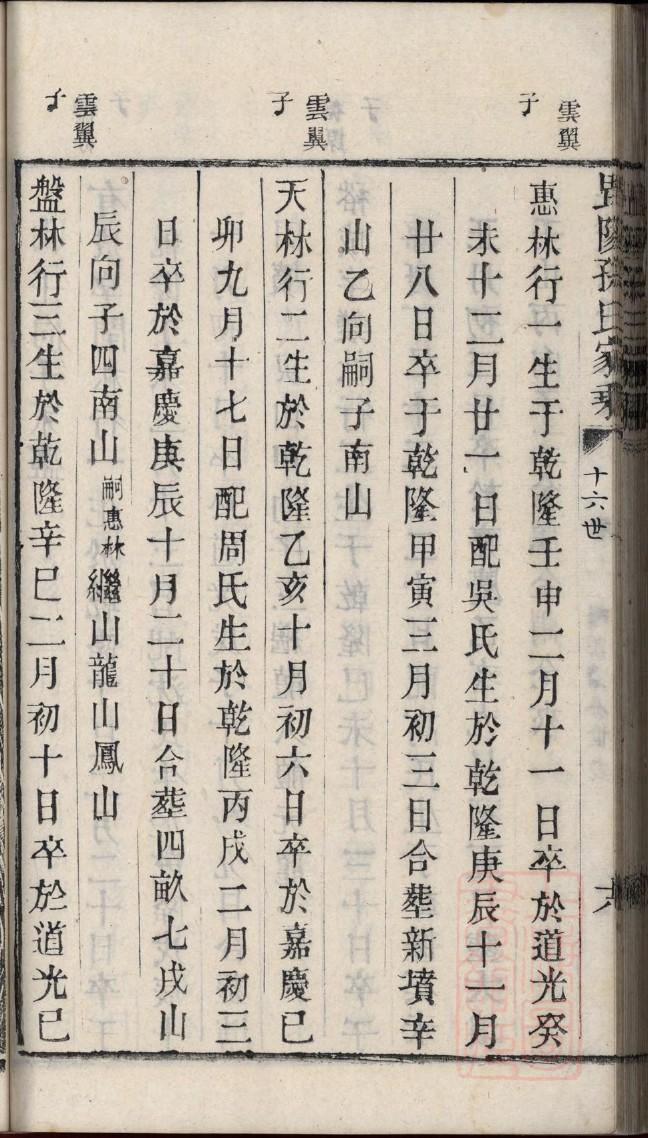 毘陵孫氏家乘
十六世
六
雲翼
子
惠林行一生于乾隆壬申二月十一日卒於道光癸
未十二月廿一日配吳氏生於乾隆庚辰十一月
廿八日卒于乾隆甲寅三月初三日合塟新墳辛
山乙向嗣子南山
雲翼
子
天林行二生於乾隆乙亥十月初六日卒於嘉慶己
卯九月十七日配周氏生於乾隆丙戌二月初三
日卒於嘉慶庚辰十月二十日合塟四畝七戌山
辰向子四南山嗣惠林繼山龍山鳳山
雲翼
子
盤林行三生於乾隆辛巳二月初十日卒於道光已